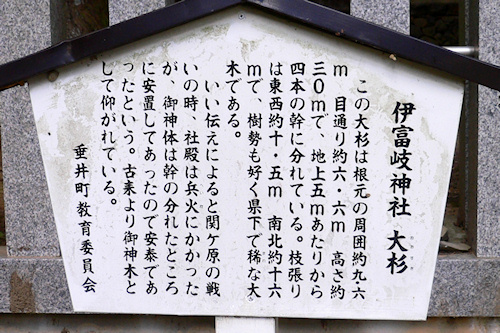 伊富岐神社 大杉
この大杉は根元の周囲約九・六
m 目通り約六・六m 高さ約
三〇mで、地上五mあたりから
四本の幹に分れている。枝張り
は東西約十・五m 南北約十六
mで、樹勢も好く県下で稀な大
木である。
いい伝えによると関ケ原の戦
いの時、社殿は兵火にかかった
が、御神体は幹の分れたところ
に安置してあったので安泰であ
ったという。古来より御神木と
して仰がれている。
垂井町教育委員会